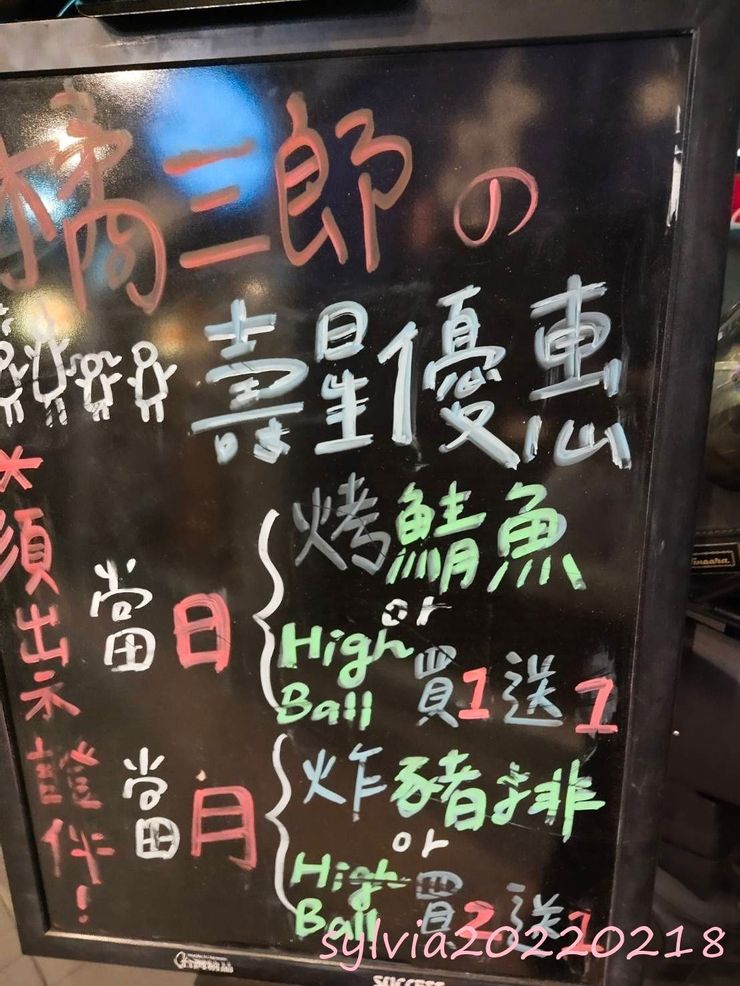 橘三郎の
壽星優惠
*須出示證件!
當日
烤鯖魚
or
High Ball 買1送1
當月
炸豬排
or
High Ball 買2送1
sylvia20220218
SUCCESS